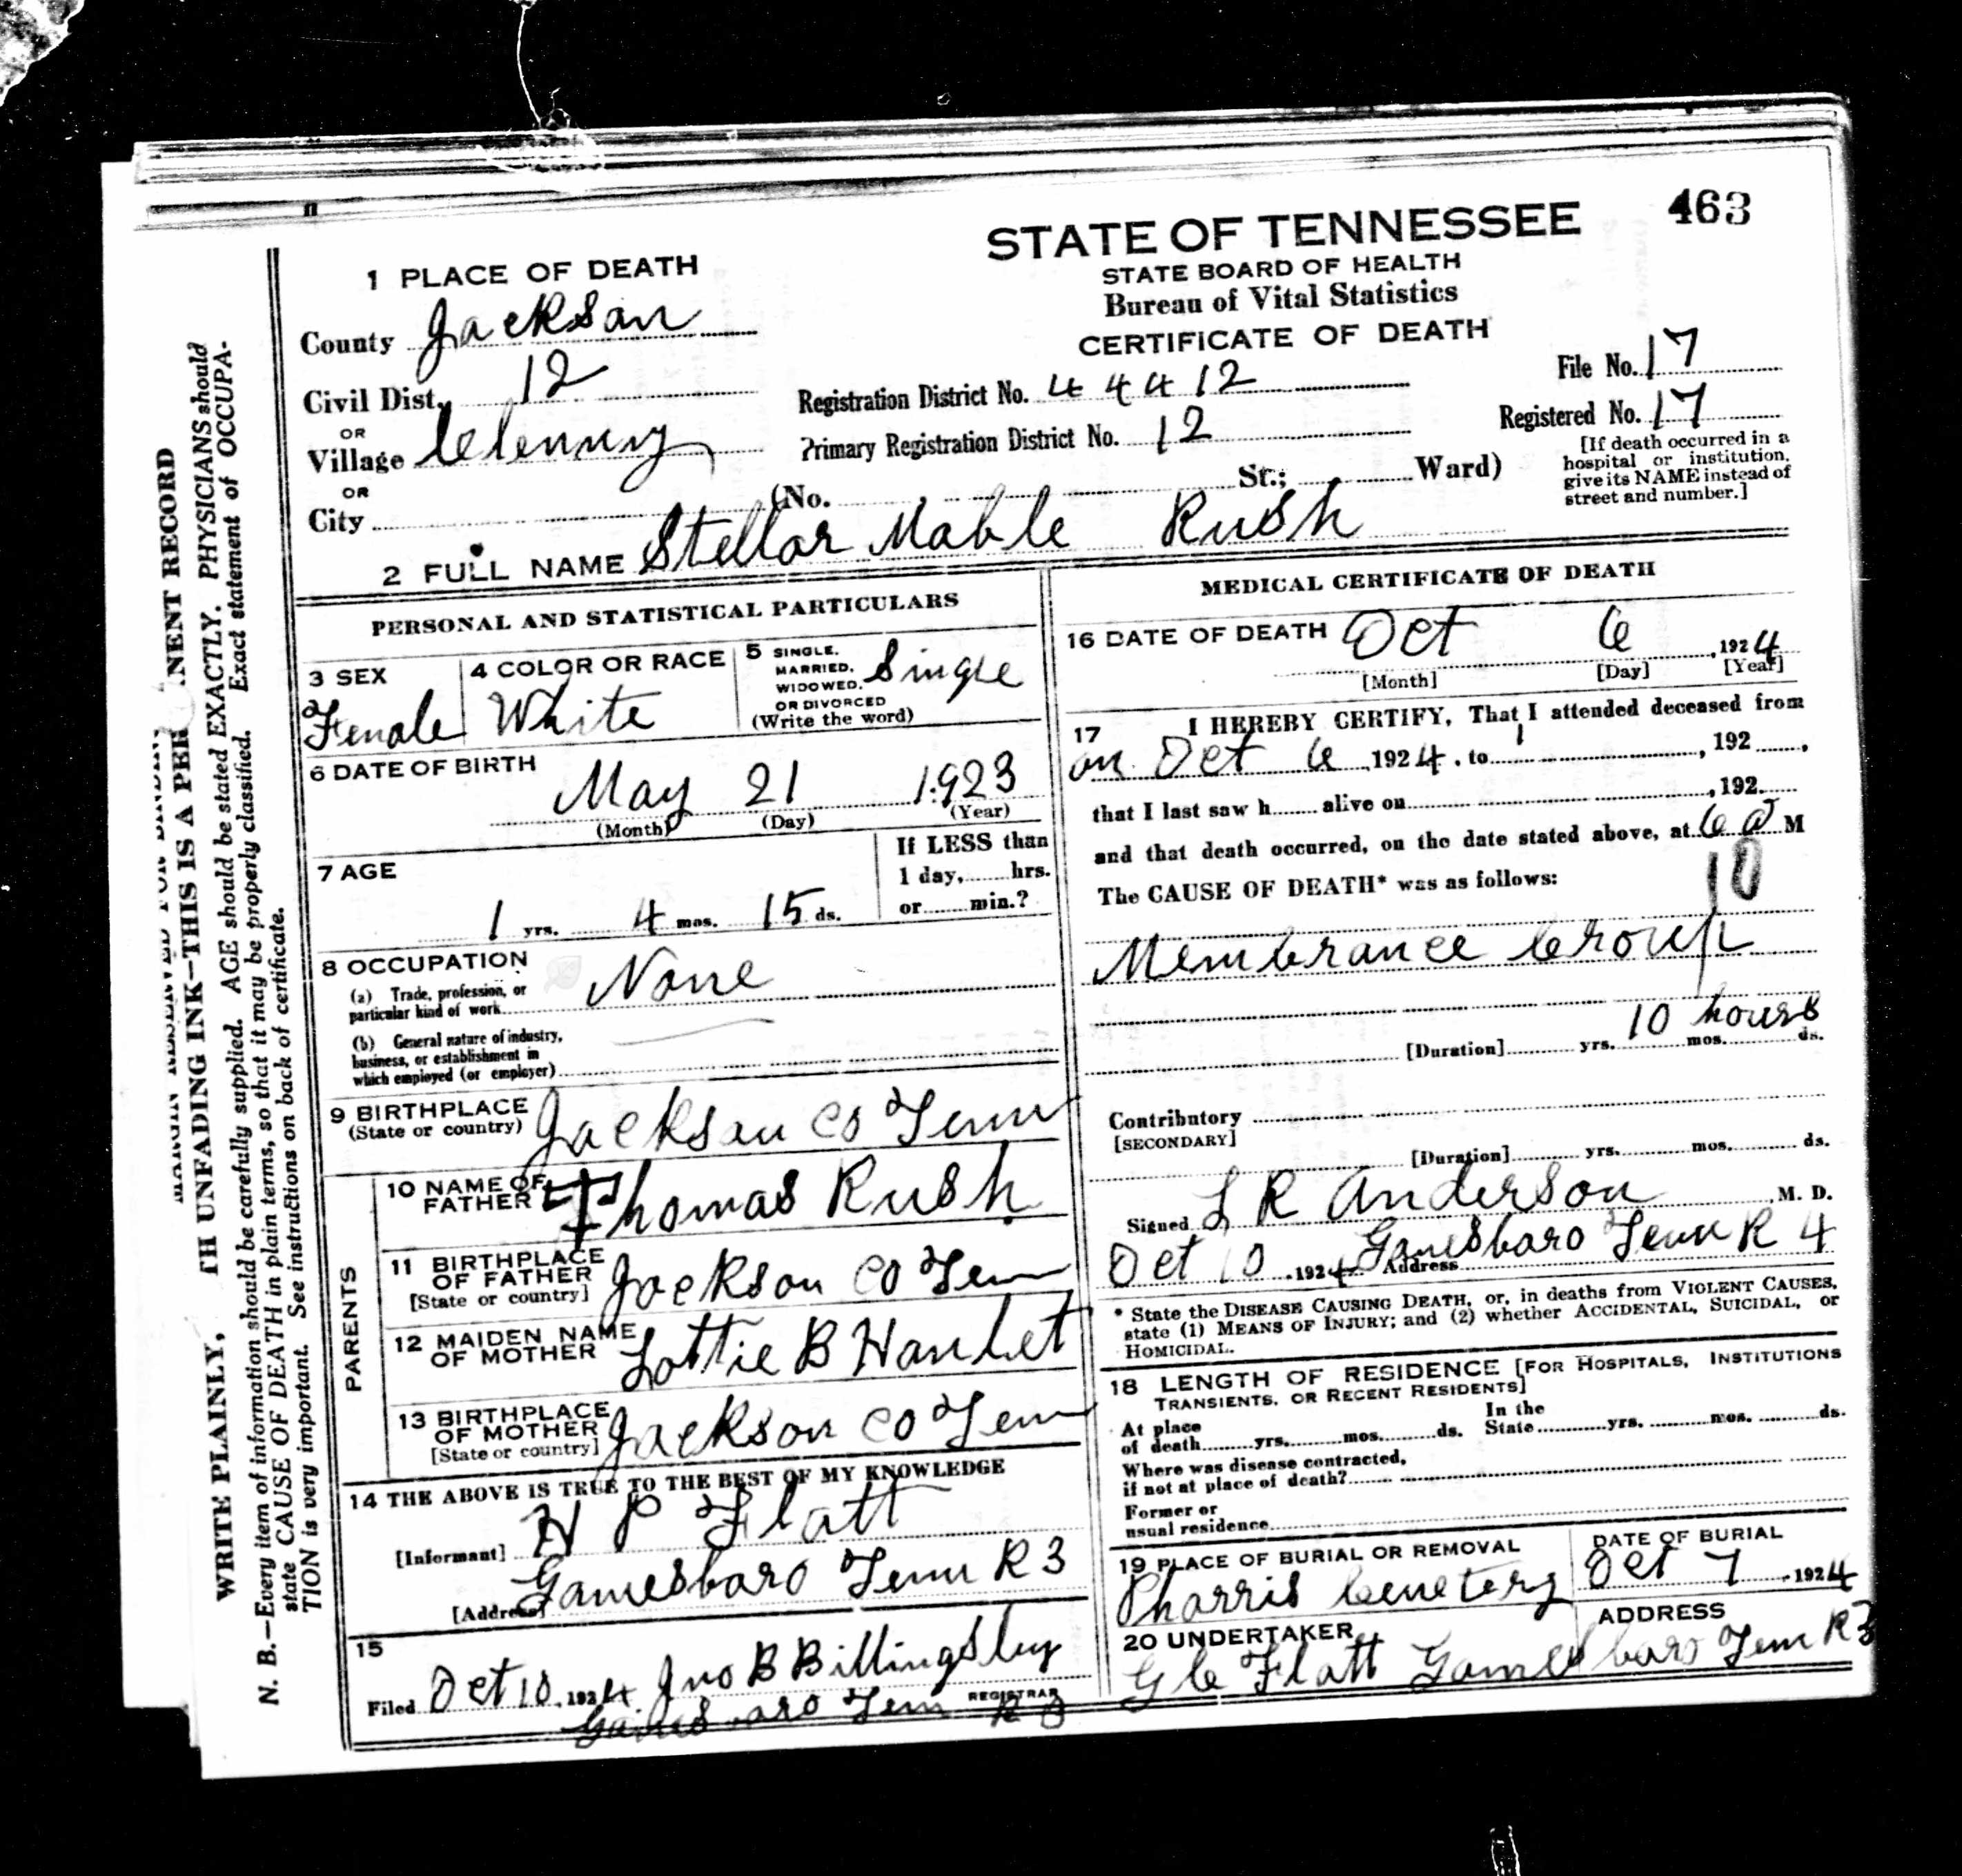 463
STATE OF TENNESSEE
STATE BOARD OF HEALTH
Bureau of Vital Statistics
CERTIFICATE OF DEATH
1 PLACE OF DEATH
County Jackson
Civil Dist. 12
OR
Village
OR
City
Registration District No. 44412
Primary Registration District No. 12
(No. St.; Ward)
File No. 17
Registered No. 17
[If death occurred in a
hospital or institution,
give its NAME instead of
street and number.]
2 FULL NAME Stellar Mable Rush
PERSONAL AND STATISTICAL PARTICULARS
3 SEX
Female
4 COLOR OR RACE
White
5 SINGLE,
MARRIED,
WIDOWED,
OR DIVORCED
(Write the word)
Single
6 DATE OF BIRTH
May 21 1923
(Month) (Day) (Year)
7 AGE
1 yrs. 4 mos. 15 ds.
If LESS than
1 day, hrs.
or min.?
8 OCCUPATION
(a) Trade, profession, or
particular kind of work
None
(b) General nature of industry,
business, or establishment in
which employed (or employer)
9 BIRTHPLACE
(State or country)
Jackson Co Tenn
PARENTS
10 NAME OF
FATHER
Thomas Rush
11 BIRTHPLACE
OF FATHER
[State or country]
Jackson Co Tenn
12 MAIDEN NAME
OF MOTHER
Lottie B
13 BIRTHPLACE
OF MOTHER
[State or country]
Jackson Co Tenn
14 THE ABOVE IS TRUE TO THE BEST OF MY KNOWLEDGE
[Informant] H P Flatt
[Address] Gainesboro Tenn R 3
15
Filed Oct 10, 1924 Jno B Billingsley
REGISTRAR
Gainesboro Tenn R 3
MEDICAL CERTIFICATE OF DEATH
16 DATE OF DEATH Oct 6, 1924
[Month] [Day] [Year]
17 I HEREBY CERTIFY, That I attended deceased from
on Oct 6, 1924, to , 192 ,
that I last saw h alive on , 192
and that death occurred, on the date stated above, at 6 a M
The CAUSE OF DEATH* was as follows:
10
Membrance Croup
10 hours
[Duration] yrs. mos. ds.
Contributory
[SECONDARY]
[Duration] yrs. mos. ds.
Signed L R Anderson, M. D.
Oct 10, 1924 Address Gainesboro Tenn R 4
* State the DISEASE CAUSING DEATH, or, in deaths from VIOLENT CAUSES,
state (1) MEANS OF INJURY; and (2) whether ACCIDENTAL, SUICIDAL, or
HOMICIDAL.
18 LENGTH OF RESIDENCE [FOR HOSPITALS, INSTITUTIONS
TRANSIENTS, OR RECENT RESIDENTS]
At place
of death yrs. mos. ds.
In the
State yrs. mos. ds.
Where was disease contracted,
if not at place of death?
Former or
usual residence
19 PLACE OF BURIAL OR REMOVAL
Pharris Cemetery
DATE OF BURIAL
Oct 7, 1924
20 UNDERTAKER
Flatt
ADDRESS
Gainesboro Tenn R 3
WRITE PLAINLY, TH UNFADING INK—THIS IS A PER NENT RECORD
N. B.—Every item of information should be carefully supplied. AGE should be stated EXACTLY. PHYSICIANS should
state CAUSE OF DEATH in plain terms, so that it may be properly classified. Exact statement of OCCUPA-
TION is very important. See instructions on back of certificate.